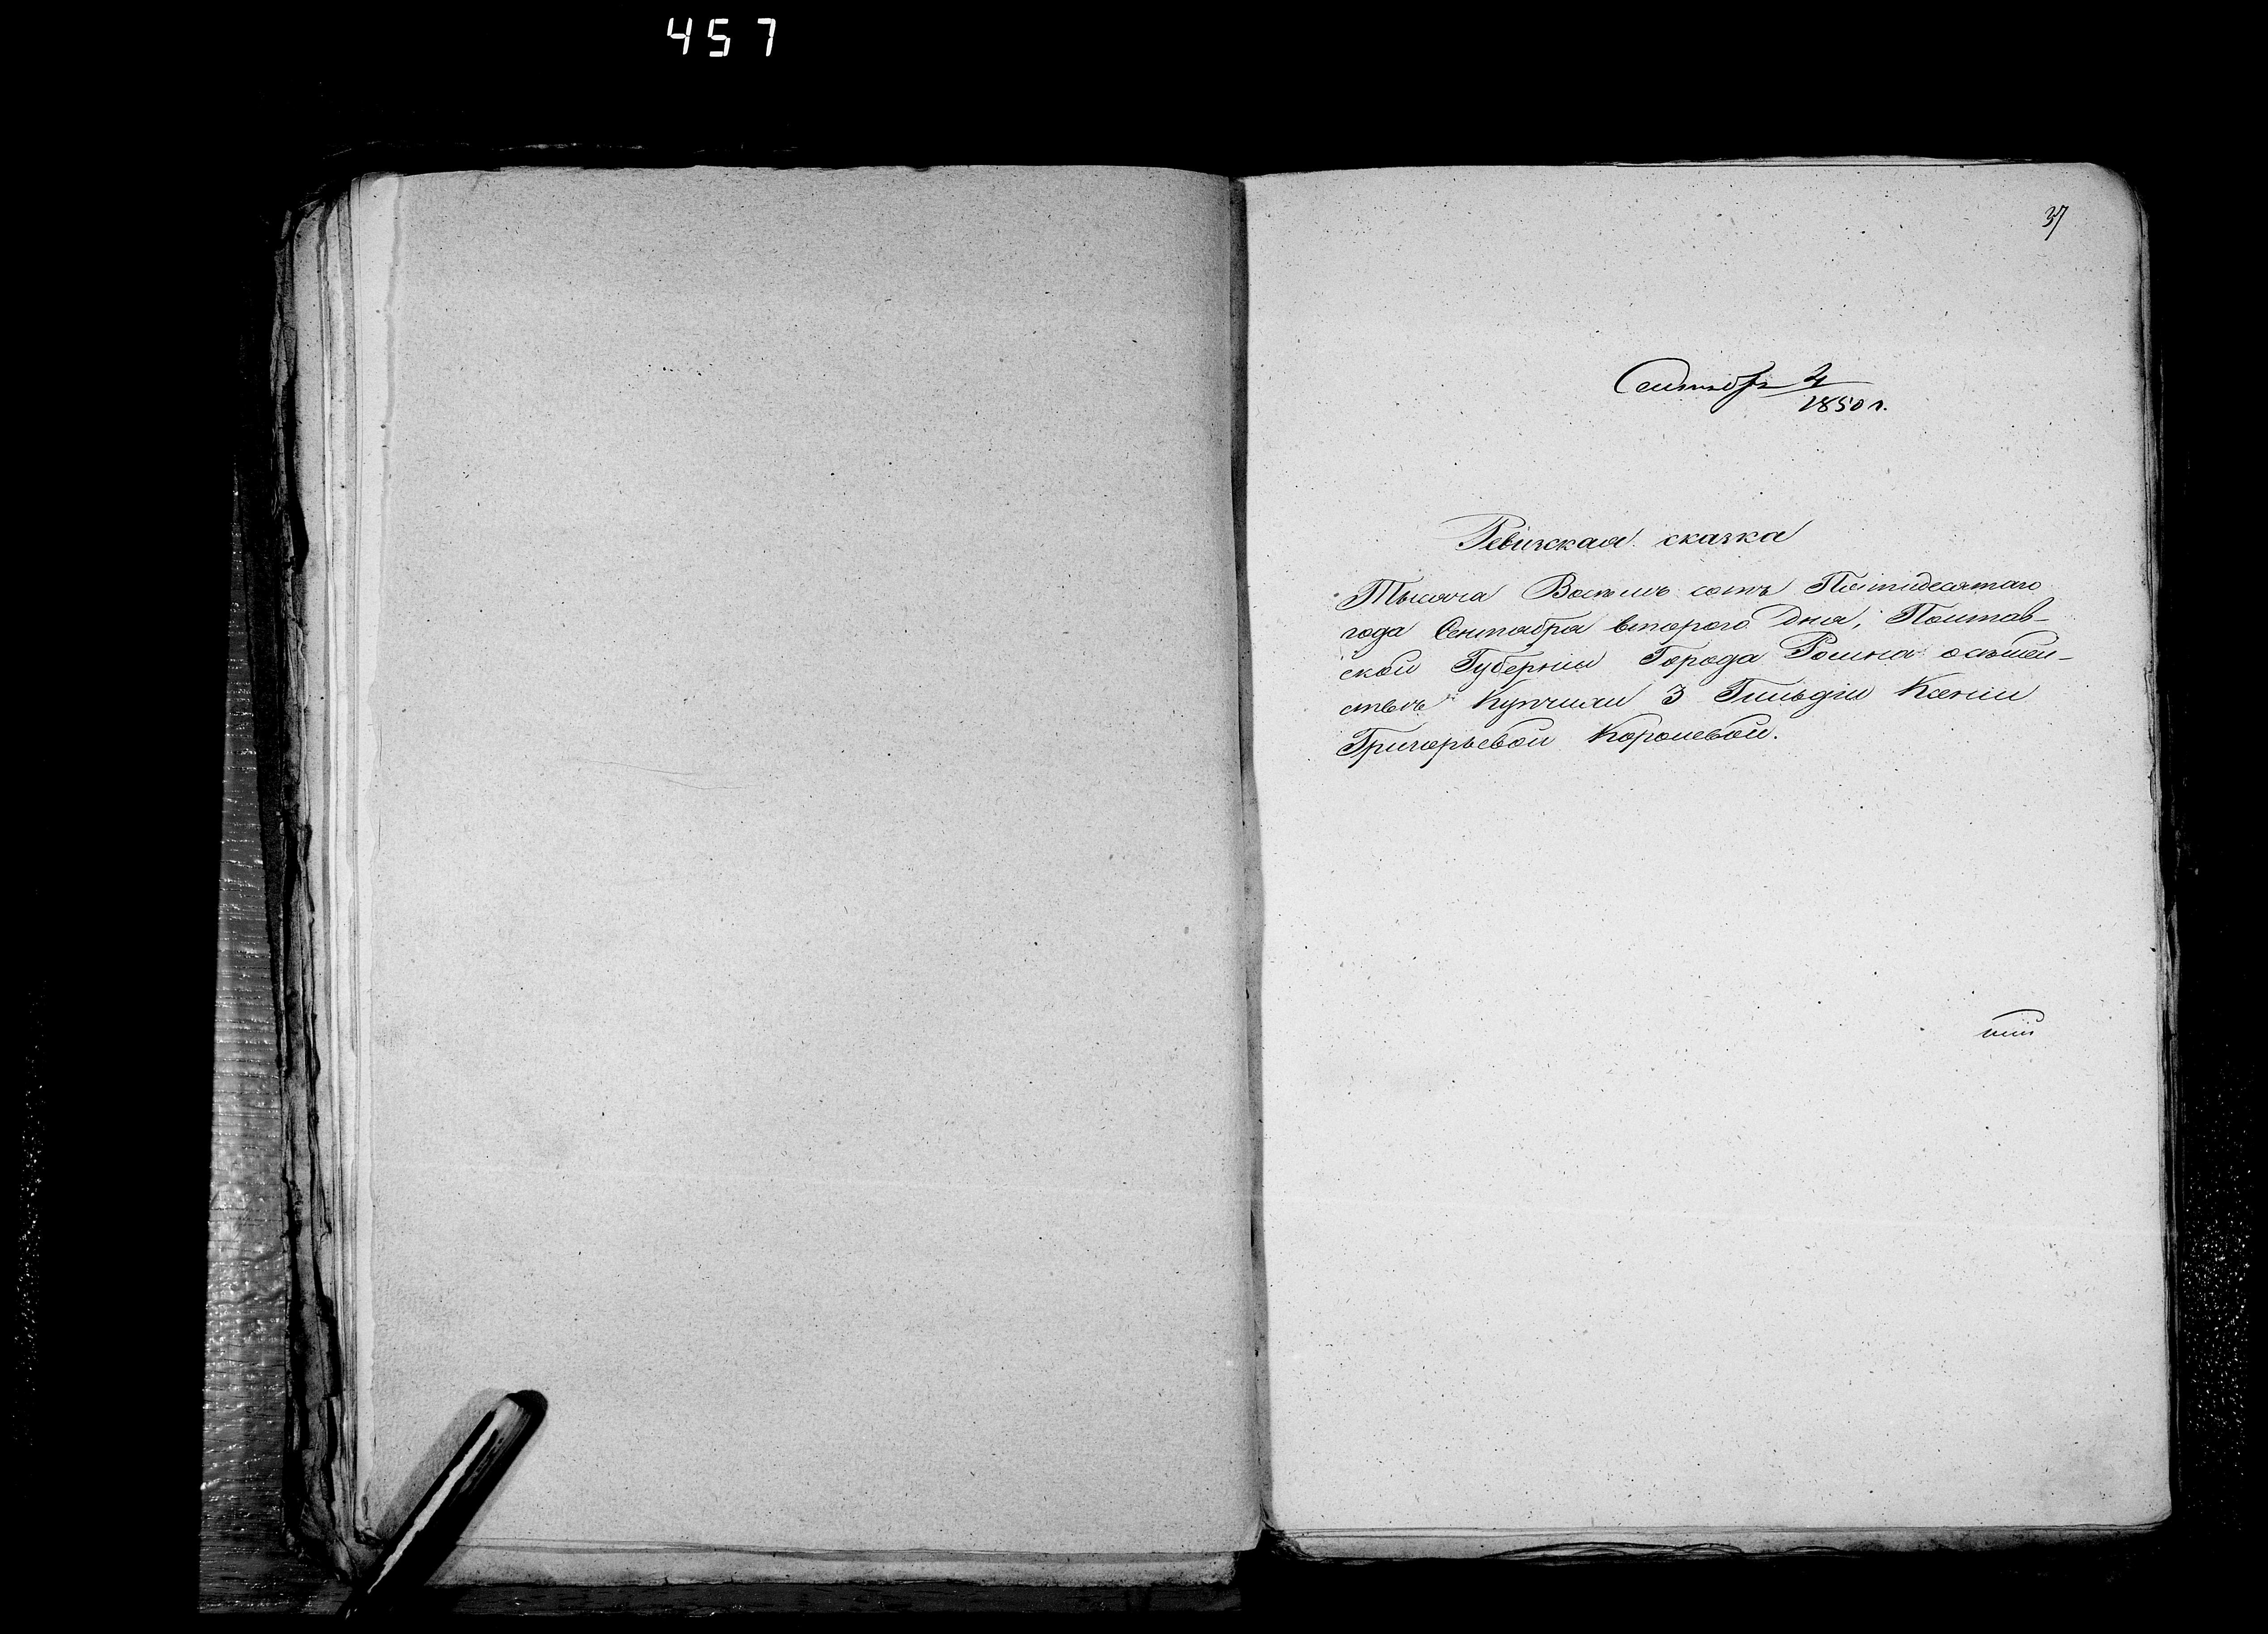 457
37
Сентябр 4
1850 г.
Ревижская сказка
Тысяча Восемь сотъ Пятидесятаго
года Сентября второго дня, Полтав-
ской Губернiи Города Ромна о семей-
ствѣ Купчихи 3 Гильдiи Ксенiи
Григорьевой Королевой.